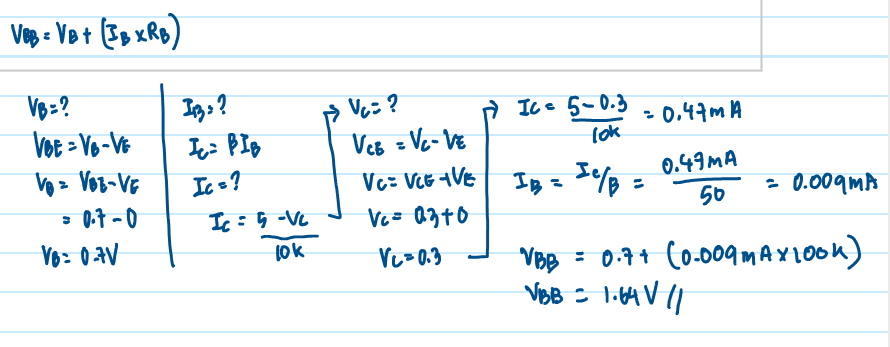 VBB = VB + (IB x RB)
VB = ?
VBE = VB - VE
VB = VBE - VE
= 0.7 - 0
VB = 0.7V
IB = ?
IC = βIB
IC = ?
IC = 5 - VC / 10k
VC = ?
VCE = VC - VE
VC = VCE + VE
VC = 0.3 + 0
VC = 0.3
IC = 5 - 0.3 / 10k = 0.47mA
IB = IC/β = 0.47mA / 50 = 0.009mA
VBB = 0.7 + (0.009mA x 100k)
VBB = 1.64V //